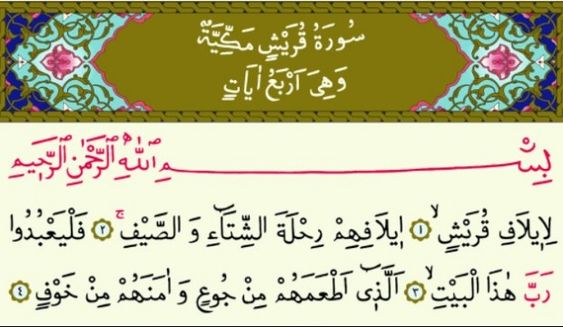 سُورَةُ قُرَيْشٍ مَكِّيَّةٌ
وَهِىَ اَرْبَعُ اٰيَاتٍ
بِسْمِ اللّٰهِ الرَّحْمٰنِ الرَّح۪يمِ
لِا۪يلَافِ قُرَيْشٍۙ ﴿١﴾ ا۪يلَافِهِمْ رِحْلَةَ الشِّتَٓاءِ وَ الصَّيْفِۚ ﴿٢﴾ فَلْيَعْبُدُوا
رَبَّ هٰذَا الْبَيْتِۙ ﴿٣﴾ اَلَّذ۪ٓى اَطْعَمَهُمْ مِنْ جُوعٍ وَ اٰمَنَهُمْ مِنْ خَوْفٍ ﴿٤﴾